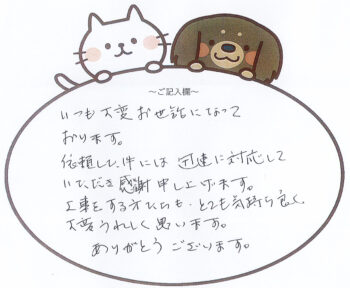 ～ご記入欄～
いつも大変お世話になって
おります。
依頼した件には迅速に対応して
いただき感謝申し上げます。
工事をする方たちも、とても気持ち良く、
大変うれしく思います。
ありがとうございます。